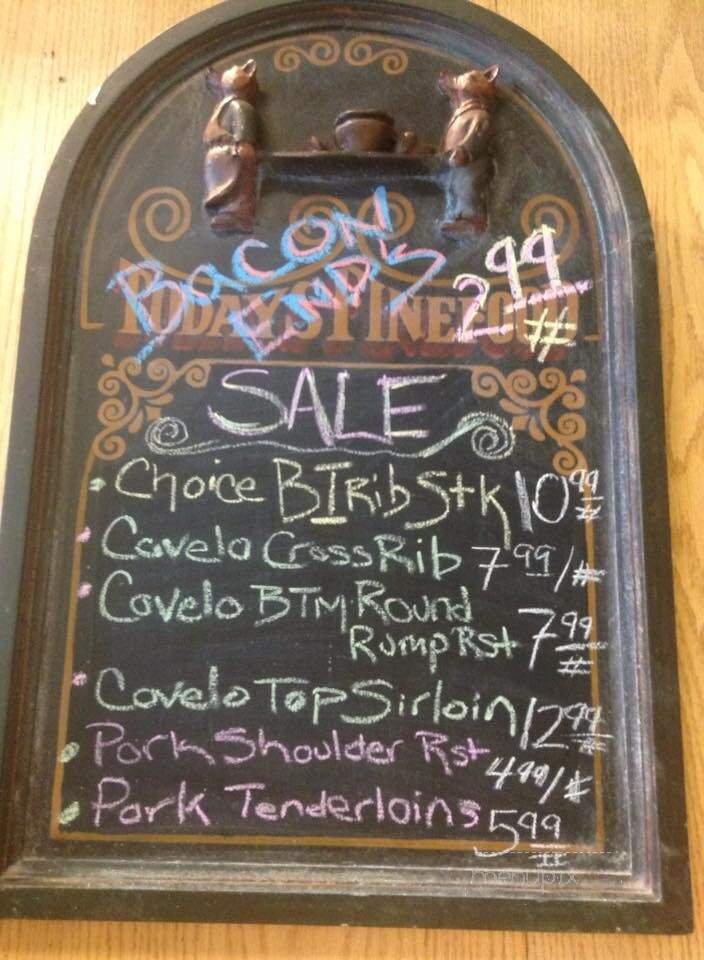 BACON 2.99
ENDS #
TODAY'S FINE FOOD
SALE
• Choice BI Rib Stk 10.99 #
• Covelo Cross Rib 7.99/#
• Covelo BTM Round
Rump Rst 7.99 #
• Covelo Top Sirloin 12.99 #
• Pork Shoulder Rst 4.99/#
• Pork Tenderloins 5.99 #
menupix